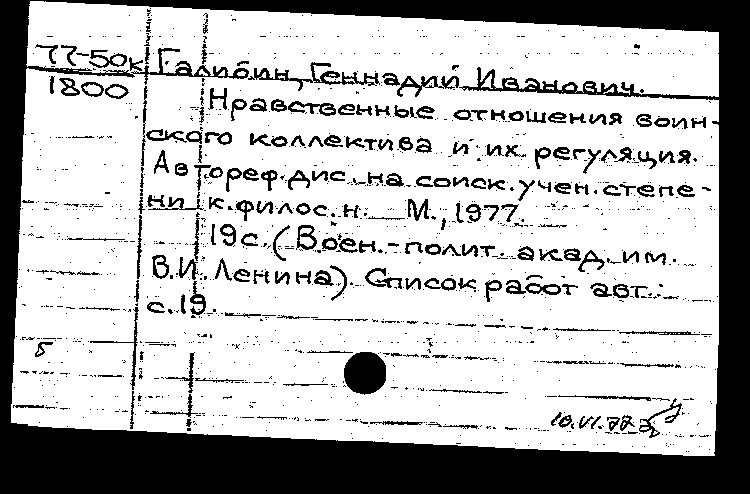 77-50к Галибин, Геннадий Иванович.
1800
Нравственные отношения воин-
ского коллектива и их регуляция.
Автореф. дис. на соиск. учен. степе-
ни к. филос. н. М., 1977.
19 с. (Воен.-полит. акад. им.
В.И. Ленина). Список работ авт.:
с. 19.
Б
10.VI.77